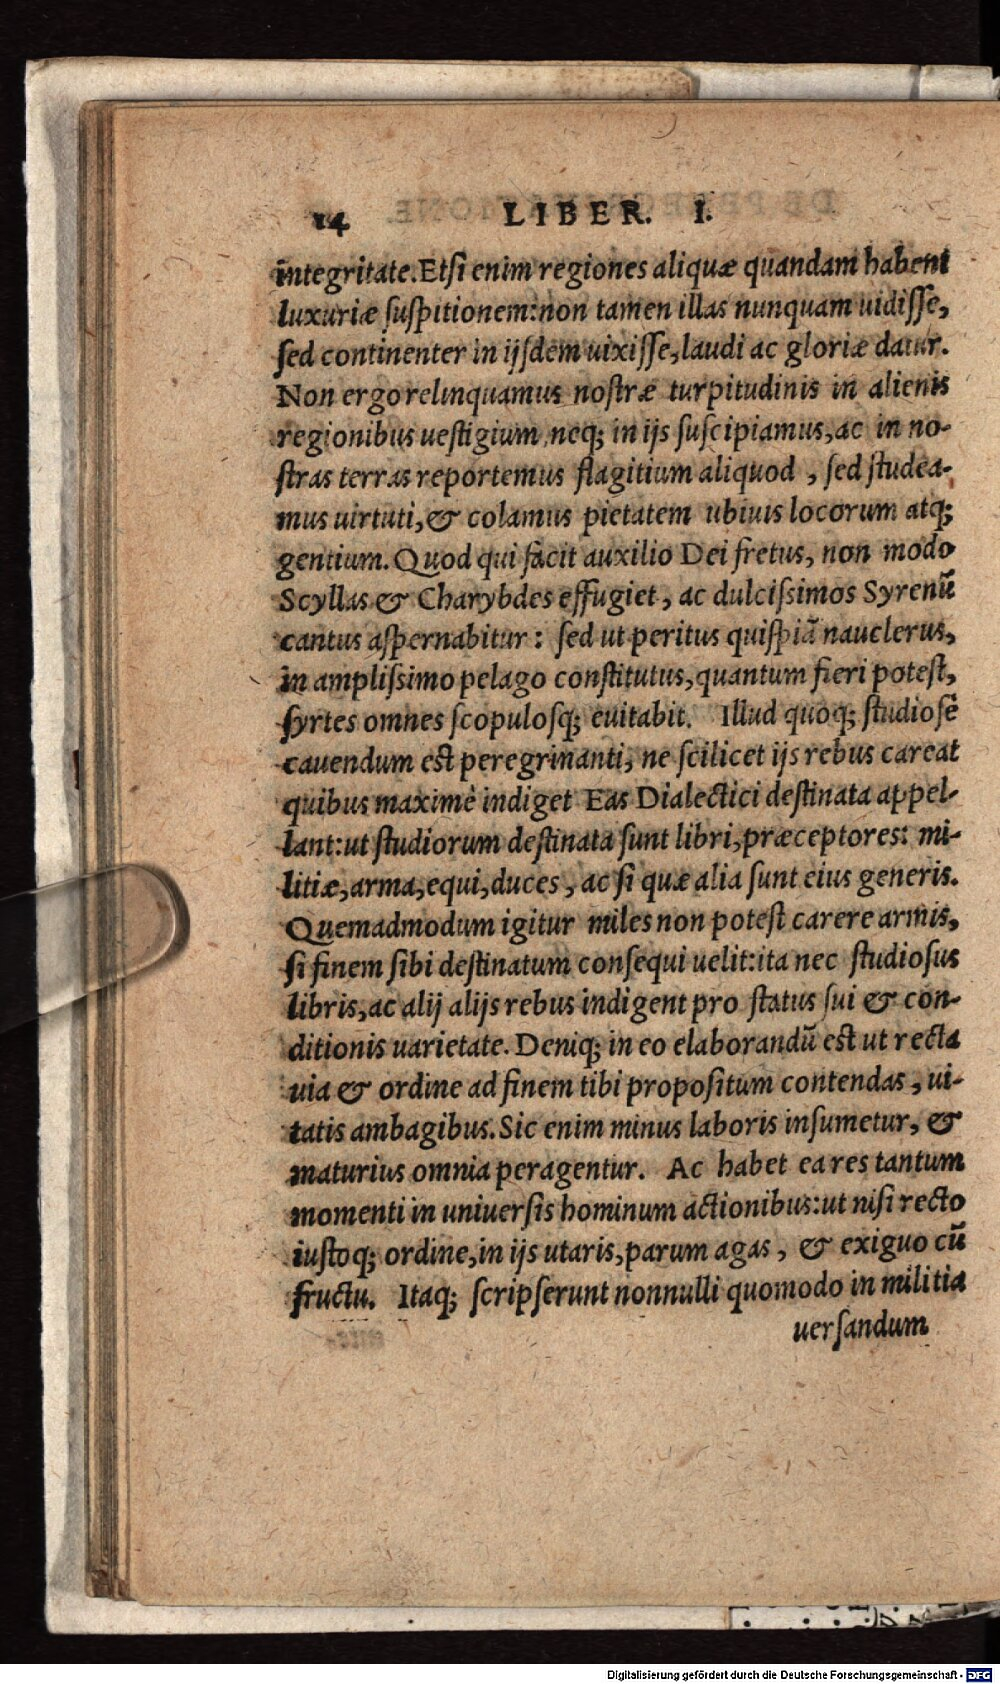 14 LIBER. I.
integritate. Etſi enim regiones aliquæ quandam habent
luxuriæ ſuſpitionem: non tamen illas nunquam uidiſſe,
ſed continenter in ijſdem uixiſſe, laudi ac gloriæ datur.
Non ergo relinquamus noſtræ turpitudinis in alienis
regionibus ueſtigium neq; in ijs ſuſcipiamus, ac in no-
ſtras terras reportemus flagitium aliquod, ſed ſtudea-
mus uirtuti, & colamus pietatem ubiuis locorum atq;
gentium. Quod qui facit auxilio Dei fretus, non modo
Scyllas & Charybdes effugiet, ac dulciſsimos Syrenũ
cantus aſpernabitur: ſed ut peritus quiſpiã nauclerus,
in ampliſsimo pelago conſtitutus, quantum fieri poteſt,
ſyrtes omnes ſcopuloſq; euitabit. Illud quoq; ſtudioſè
cauendum eſt peregrinanti, ne ſcilicet ijs rebus careat
quibus maximè indiget Eas Dialectici deſtinata appel-
lant: ut ſtudiorum deſtinata ſunt libri, præceptores: mi-
litiæ, arma, equi, duces, ac ſi quæ alia ſunt eius generis.
Quemadmodum igitur miles non poteſt carere armis,
ſi finem ſibi deſtinatum conſequi uelit: ita nec ſtudioſus
libris, ac alij alijs rebus indigent pro ſtatus ſui & con-
ditionis uarietate. Deniq; in eo elaborandũ eſt ut recta
uia & ordine ad finem tibi propoſitum contendas, ui-
tatis ambagibus. Sic enim minus laboris inſumetur, &
maturius omnia peragentur. Ac habet ea res tantum
momenti in uniuerſis hominum actionibus: ut niſi recto
iuſtoq; ordine, in ijs utaris, parum agas, & exiguo cũ
fructu. Itaq; ſcripſerunt nonnulli quomodo in militia
uerſandum
Digitalisierung gefördert durch die Deutsche Forschungsgemeinschaft - DFG